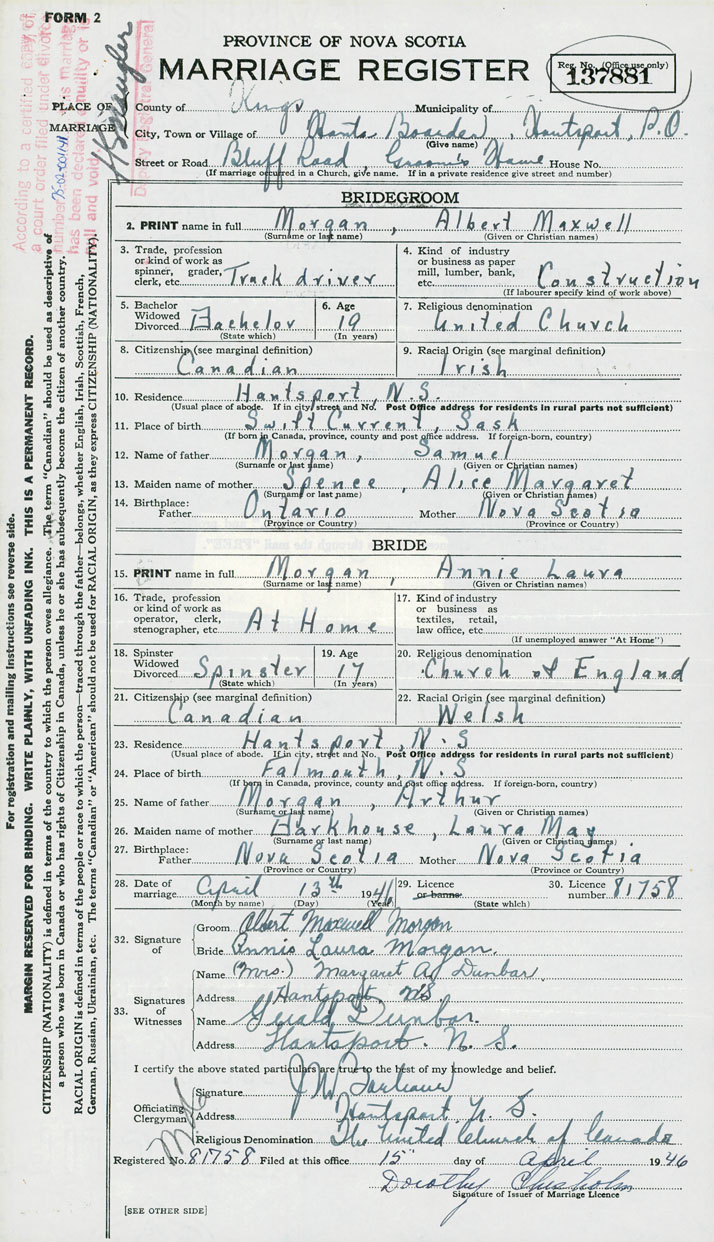 FORM 2
PROVINCE OF NOVA SCOTIA
MARRIAGE REGISTER
Reg. No. (Office use only)
137881
According to a certified copy of
a court order filed under divorce
number 75-02-20141 this marriage
has been declared a nullity or is
null and void.
Deputy Registrar General
PLACE OF MARRIAGE
County of Kings Municipality of
City, Town or Village of Hants Boarder, Hantsport, P.O.
(Give name)
Street or Road Bluff Road, Groom's Home House No.
(If marriage occurred in a Church, give name. If in a private residence give street and number)
BRIDEGROOM
2. PRINT name in full Morgan, Albert Maxwell
(Surname or last name) (Given or Christian names)
3. Trade, profession or kind of work as spinner, grader, clerk, etc. Truck driver
4. Kind of industry or business as paper mill, lumber, bank, etc. Construction
(If labourer specify kind of work above)
5. Bachelor Widowed Divorced Bachelor
(State which)
6. Age 19
(In years)
7. Religious denomination United Church
8. Citizenship (see marginal definition) Canadian
9. Racial Origin (see marginal definition) Irish
10. Residence Hantsport, N.S.
(Usual place of abode. If in city, street and No. Post Office address for residents in rural parts not sufficient)
11. Place of birth Swift Current, Sask
(If born in Canada, province, county and post office address. If foreign-born, country)
12. Name of father Morgan, Samuel
(Surname or last name) (Given or Christian names)
13. Maiden name of mother Spence, Alice Margaret
(Surname or last name) (Given or Christian names)
14. Birthplace: Father Ontario Mother Nova Scotia
(Province or Country) (Province or Country)
BRIDE
15. PRINT name in full Morgan, Annie Laura
(Surname or last name) (Given or Christian names)
16. Trade, profession or kind of work as operator, clerk, stenographer, etc. At Home
17. Kind of industry or business as textiles, retail, law office, etc.
(If unemployed answer "At Home")
18. Spinster Widowed Divorced Spinster
(State which)
19. Age 17
(In years)
20. Religious denomination Church of England
21. Citizenship (see marginal definition) Canadian
22. Racial Origin (see marginal definition) Welsh
23. Residence Hantsport, N.S
(Usual place of abode. If in city, street and No. Post Office address for residents in rural parts not sufficient)
24. Place of birth Falmouth, N.S
(If born in Canada, province, county and post office address. If foreign-born, country)
25. Name of father Morgan, Arthur
(Surname or last name) (Given or Christian names)
26. Maiden name of mother Harkhouse, Laura May
(Surname or last name) (Given or Christian names)
27. Birthplace: Father Nova Scotia Mother Nova Scotia
(Province or Country) (Province or Country)
28. Date of marriage April 13th 1946
(Month by name) (Day) (Year)
29. Licence or banns
(State which)
30. Licence number 81758
32. Signature of
Groom Albert Maxwell Morgan
Bride Annie Laura Morgan.
33. Signatures of Witnesses
Name (Mrs.) Margaret A. Dunbar
Address Hantsport NS
Name Gerald Dunbar.
Address Hantsport. N. S.
I certify the above stated particulars are true to the best of my knowledge and belief.
Officiating Clergyman
Signature J W
Address Hantsport N. S.
Religious Denomination The United Church of Canada
Registered No. 81758 Filed at this office 15" day of April 1946
Dorothy Chisholm
Signature of Issuer of Marriage Licence
[SEE OTHER SIDE]
For registration and mailing instructions see reverse side.
MARGIN RESERVED FOR BINDING. WRITE PLAINLY, WITH UNFADING INK. THIS IS A PERMANENT RECORD.
CITIZENSHIP (NATIONALITY) is defined in terms of the country to which the person owes allegiance. The term "Canadian" should be used as descriptive of
a person who was born in Canada or who has rights of Citizenship in Canada, unless he or she has subsequently become the citizen of another country.
RACIAL ORIGIN is defined in terms of the people or race to which the person—traced through the father—belongs, whether English, Irish, Scottish, French,
German, Russian, Ukrainian, etc. The terms "Canadian" or "American" should not be used for RACIAL ORIGIN, as they express CITIZENSHIP (NATIONALITY).